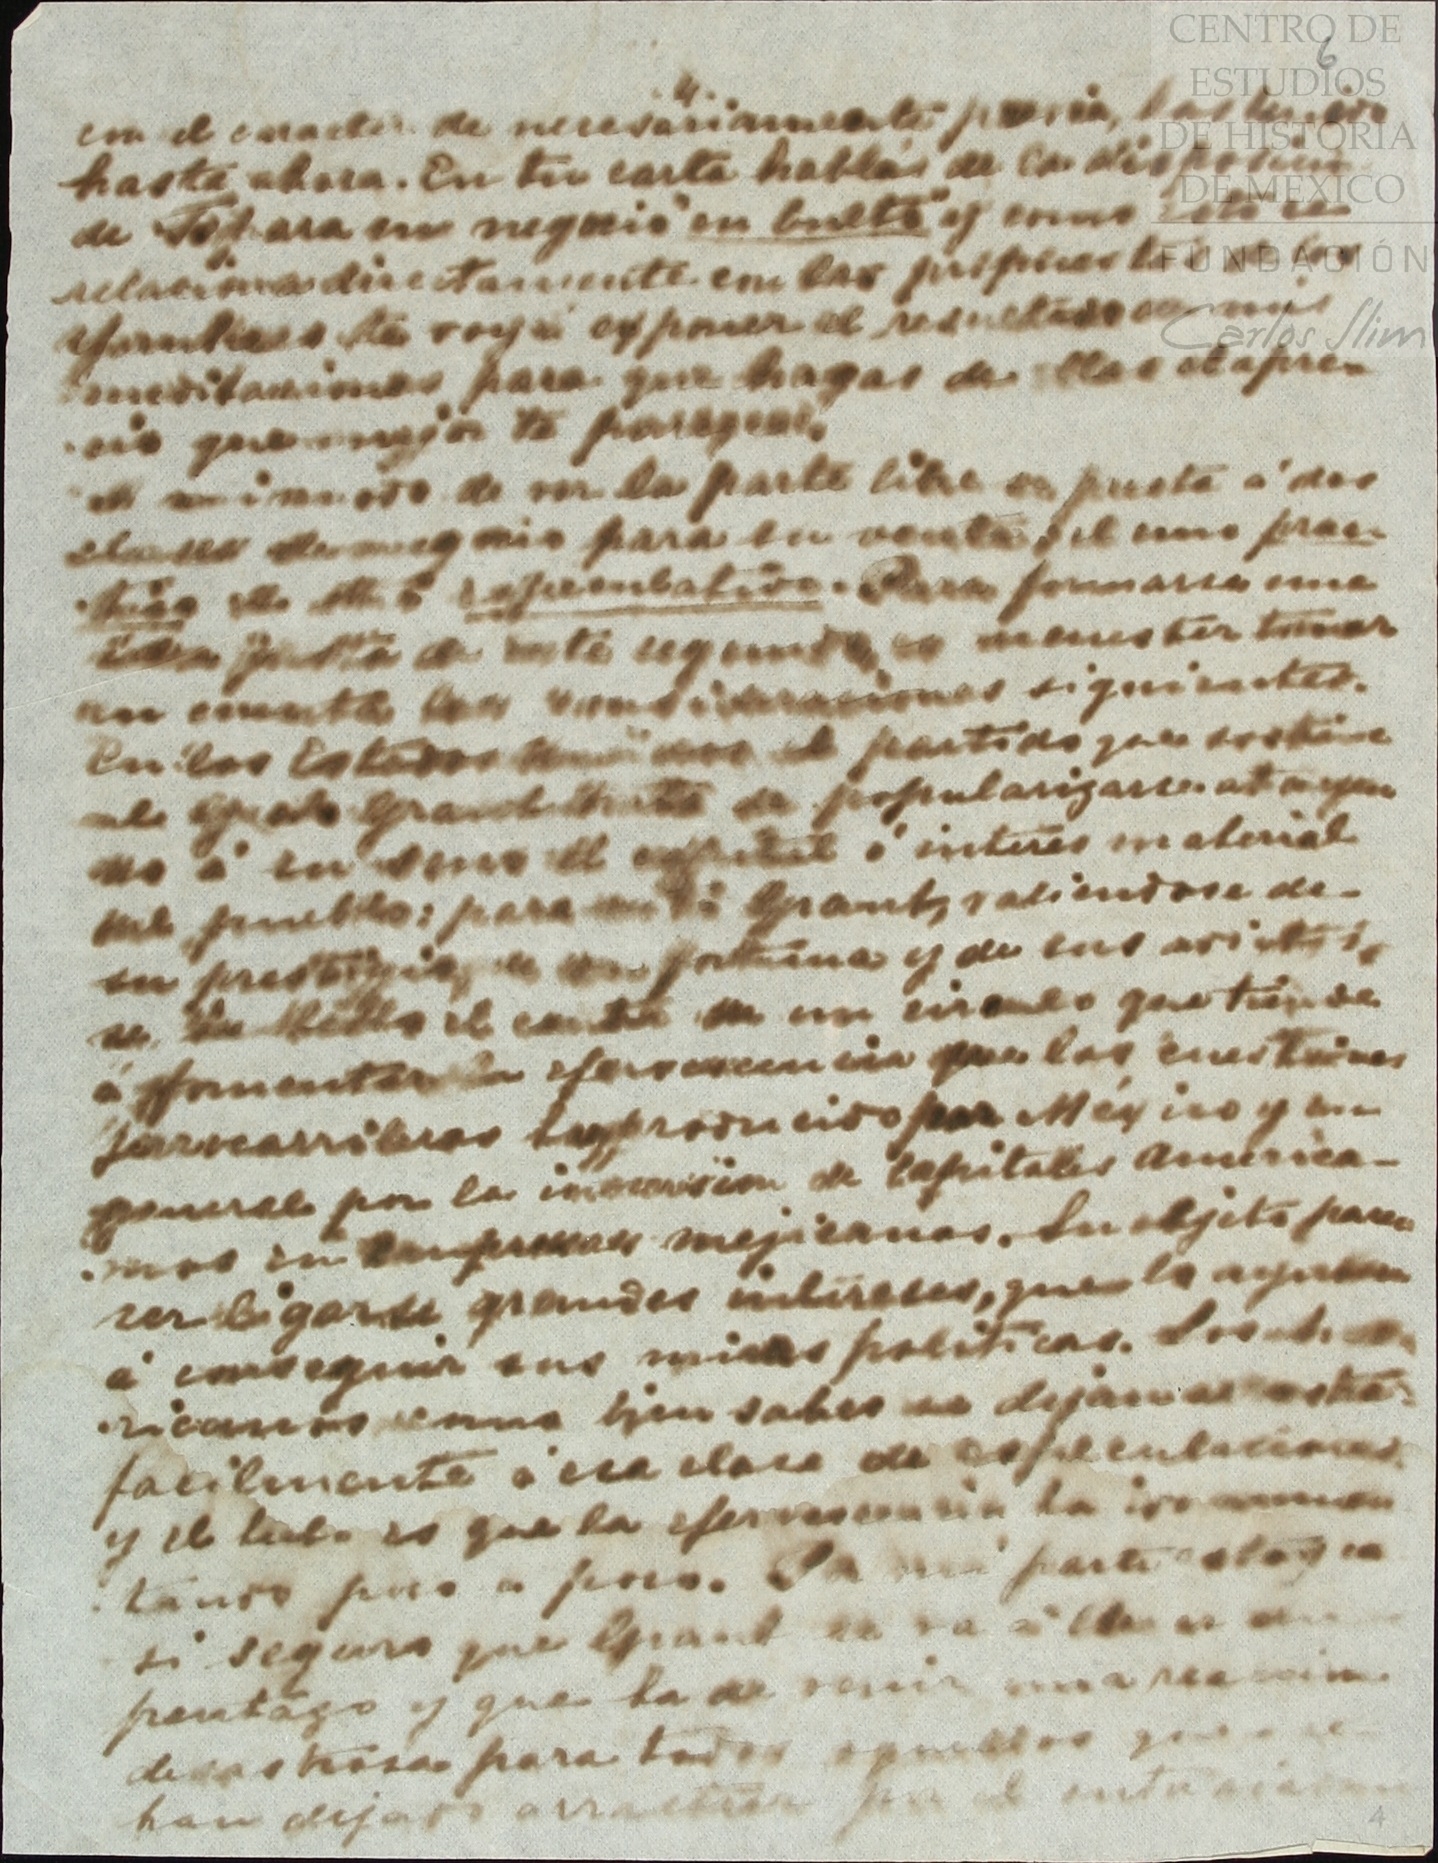 CENTRO DE
ESTUDIOS
DE HISTORIA
DE MEXICO
FUNDACIÓN
Carlos Slim
6
4.
con el caracter de necesariamente previa,
hasta ahora. En tu carta hablas de la disposicion
de para un negocio en bulto y como esto se
relaciona directamente con las propuestas
te voy á exponer el resultado de mis
meditaciones para que hagas de ellas el apre-
cio que mejor te parezca.
A mi modo de ver la parte libre se presta á dos
clases de negocio para su venta, el uno prac-
tico y el otro especulativo. Para formarse una
idea justa de este segundo, es menester tomar
en cuenta las consideraciones siguientes.
En los Estados Unidos el partido que sostiene
al Gral. Grant trata de popularizarse atrayen-
do á su seno el capital ó interes material
del pueblo: para esto Grant, valiendose de
su prestigio, de su fortuna y de sus amistades,
se ha hecho el centro de un circulo que tiende
á fomentar la efervescencia que las cuestiones
ferrocarrileras han producido por México y en
general por la inversion de Capitales America-
nos en Empresas mejicanas. Su objeto pare-
ser ligarse grandes intereses, que lo ayuden
á conseguir sus miras politicas. Los Ame-
ricanos como bien sabes se dejan arrastrar
facilmente á esa clase de especulaciones
y el hecho es que la efervescencia ha ido aumen-
tando poco a poco. Por mi parte estoy ca-
si seguro que Grant se va á llevar un
pentazo y que ha de venir una reaccion
desastrosa para todos aquellos que se
han dejado arrastrar por el entusiasmo
4